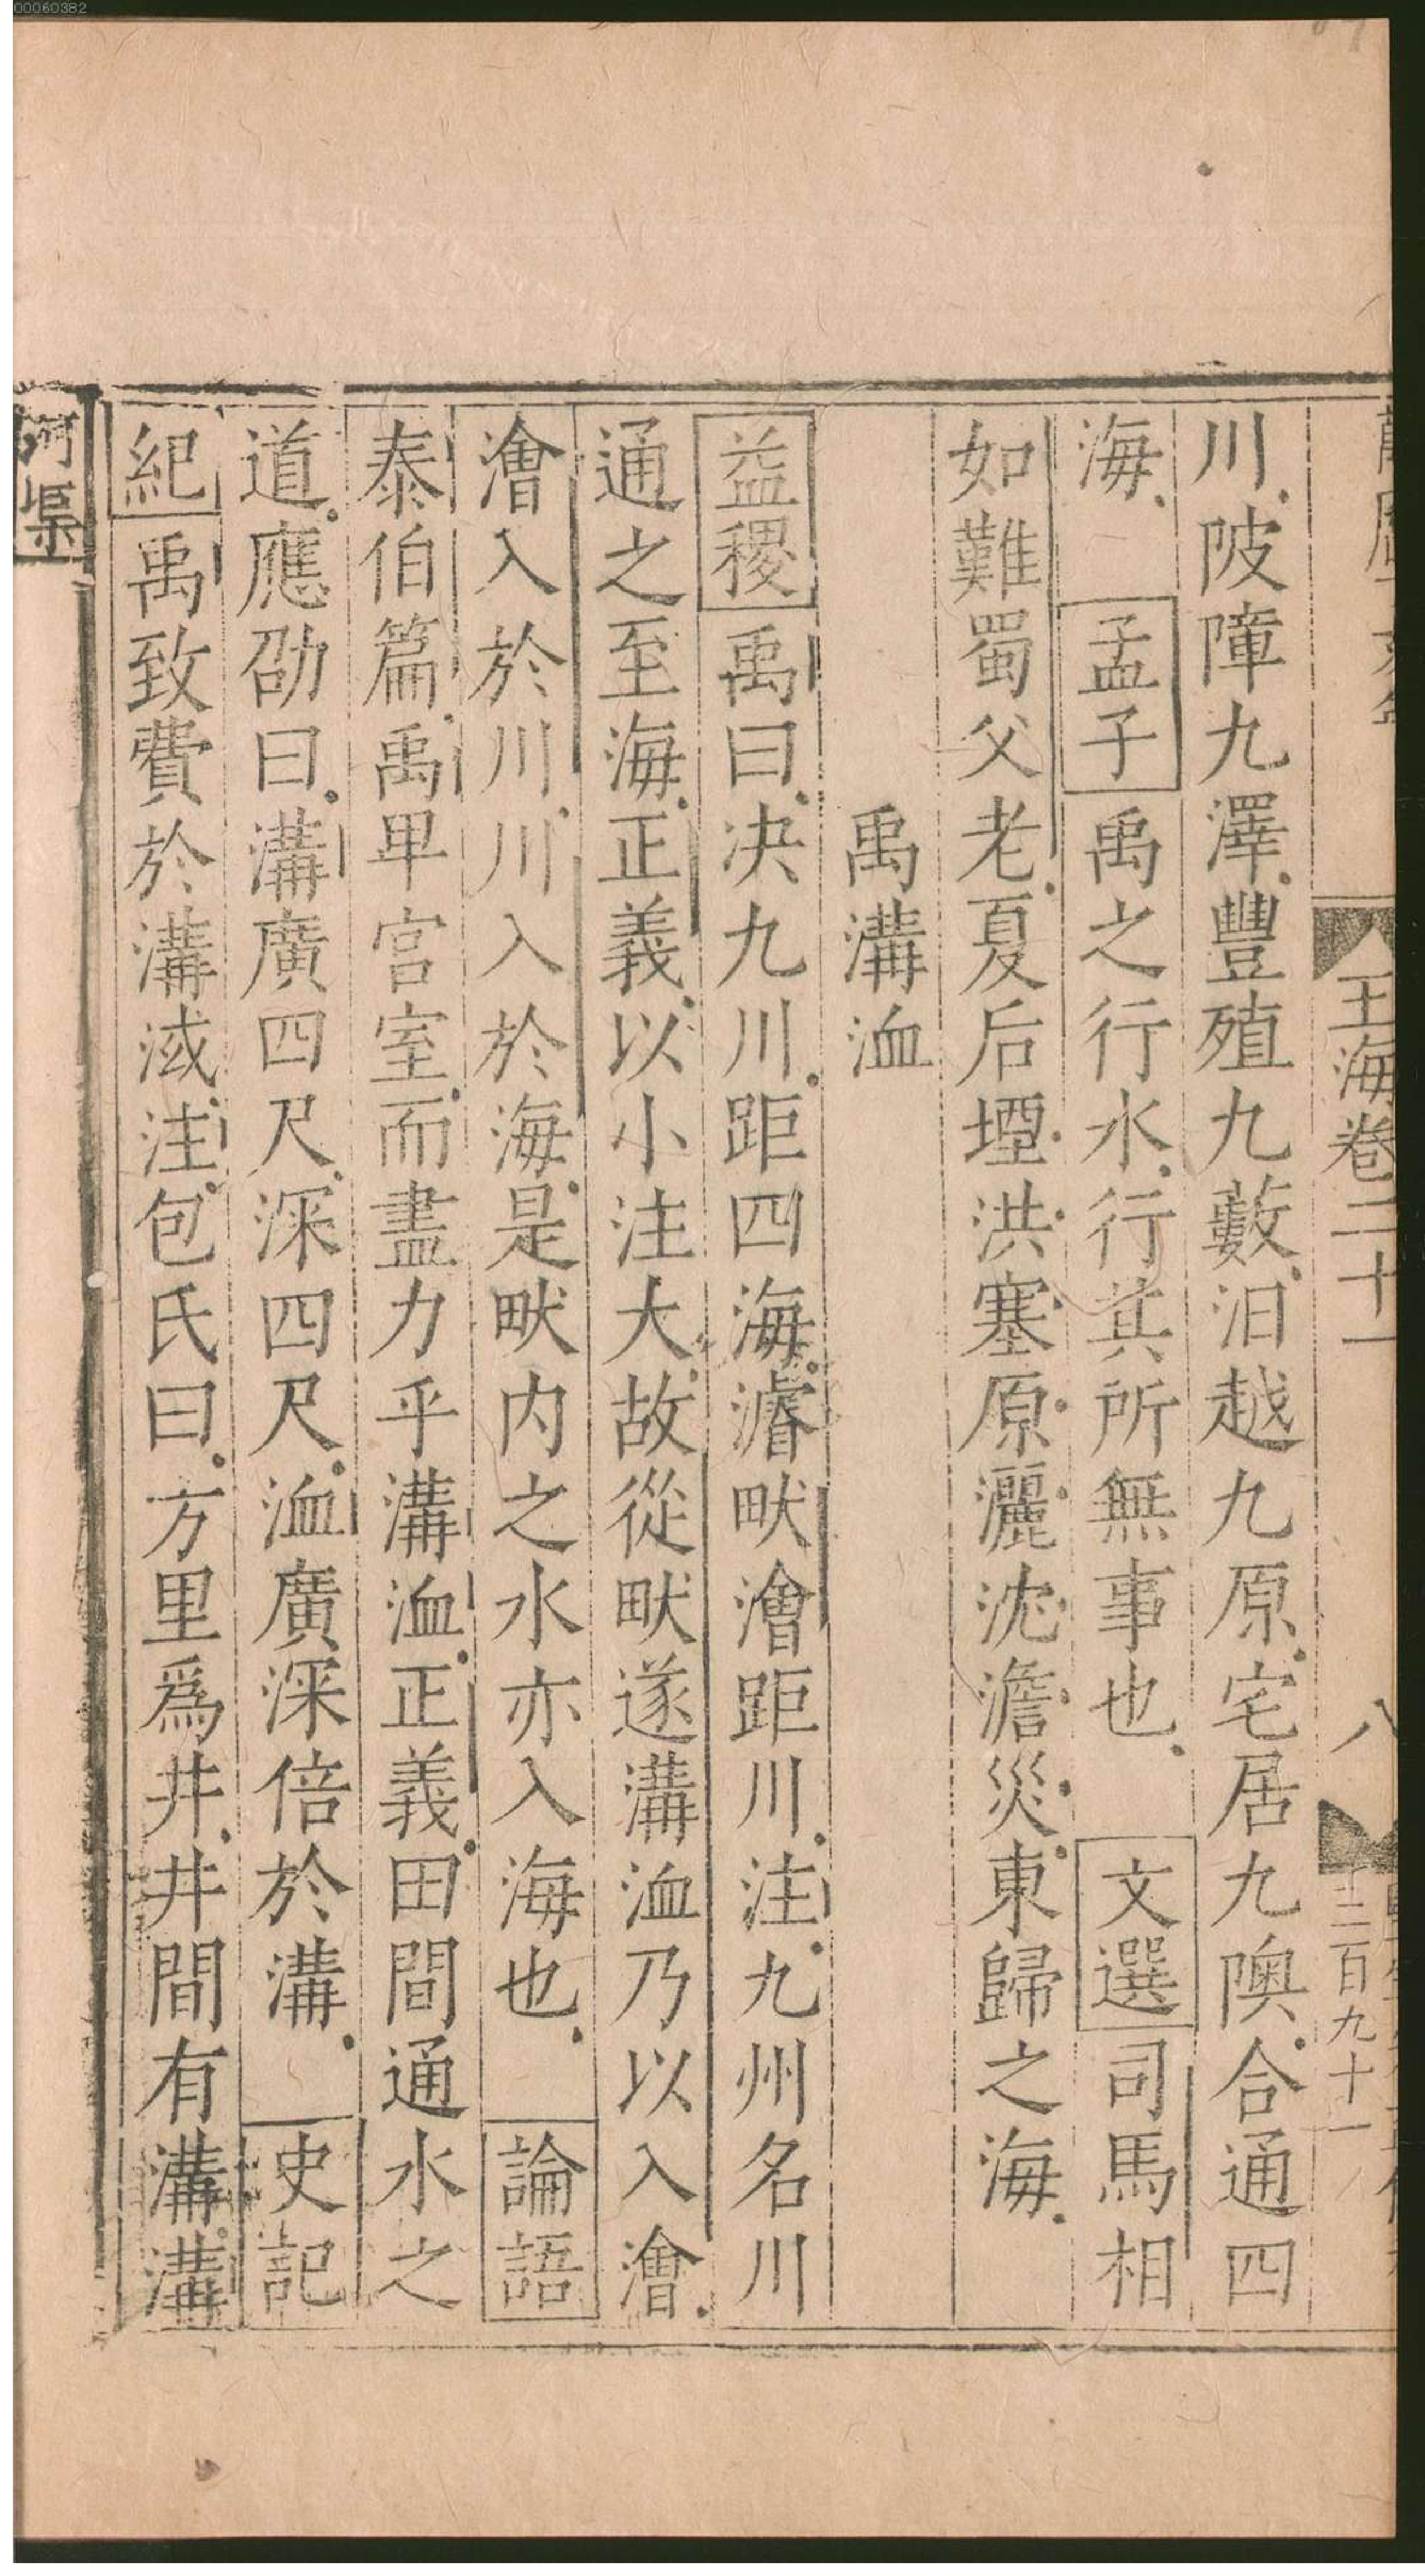 王海卷二十一
八
十二百九十一
川陂障九澤豐殖九藪汨越九原宅居九隩合通四
海　孟子禹之行水行其所無事也　文選司馬相
如難蜀父老夏后堙洪塞原灑沈澹災東歸之海
禹溝洫
益稷禹曰決九川距四海濬畎澮距川注九州名川
通之至海正義以小注大故從畎遂溝洫乃以入澮
澮入於川川入於海是畎内之水亦入海也　論語
泰伯篇禹卑宮室而盡力乎溝洫正義田間通水之
道應劭曰溝廣四尺深四尺洫廣深倍於溝　史記
紀禹致費於溝淢注包氏曰方里爲井井間有溝溝
河渠
00060382